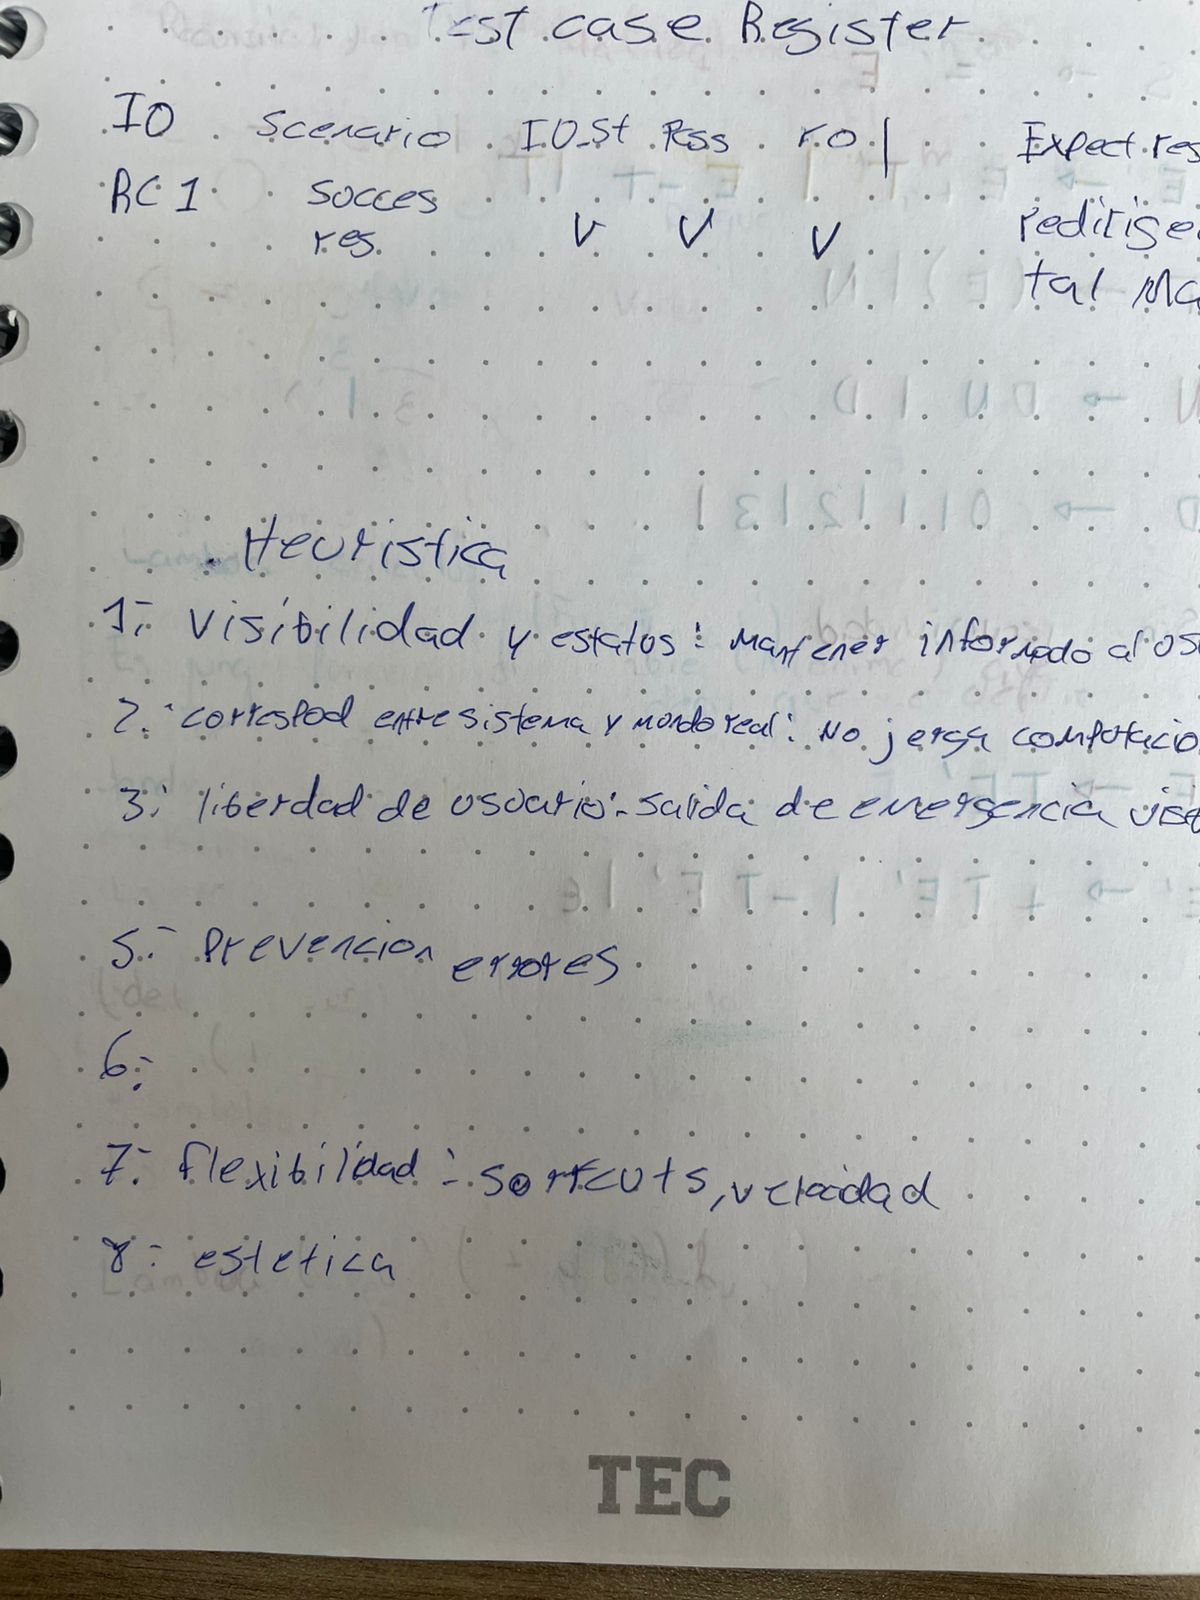 Test case Register
ID Scenario ID_st Pass r.o | Expect res
RC1 succes V V V redirige
res. tal Ma
Heuristica
1: Visibilidad y estatus: Mantener informado al us
2: correspod entre sistema y mundo real: No jerga computacio
3: libertdad de usuario: salida de emergencia vis
5: Prevencion errores
6:
7: flexibilidad: sortcuts, velocidad
8: estetica
TEC